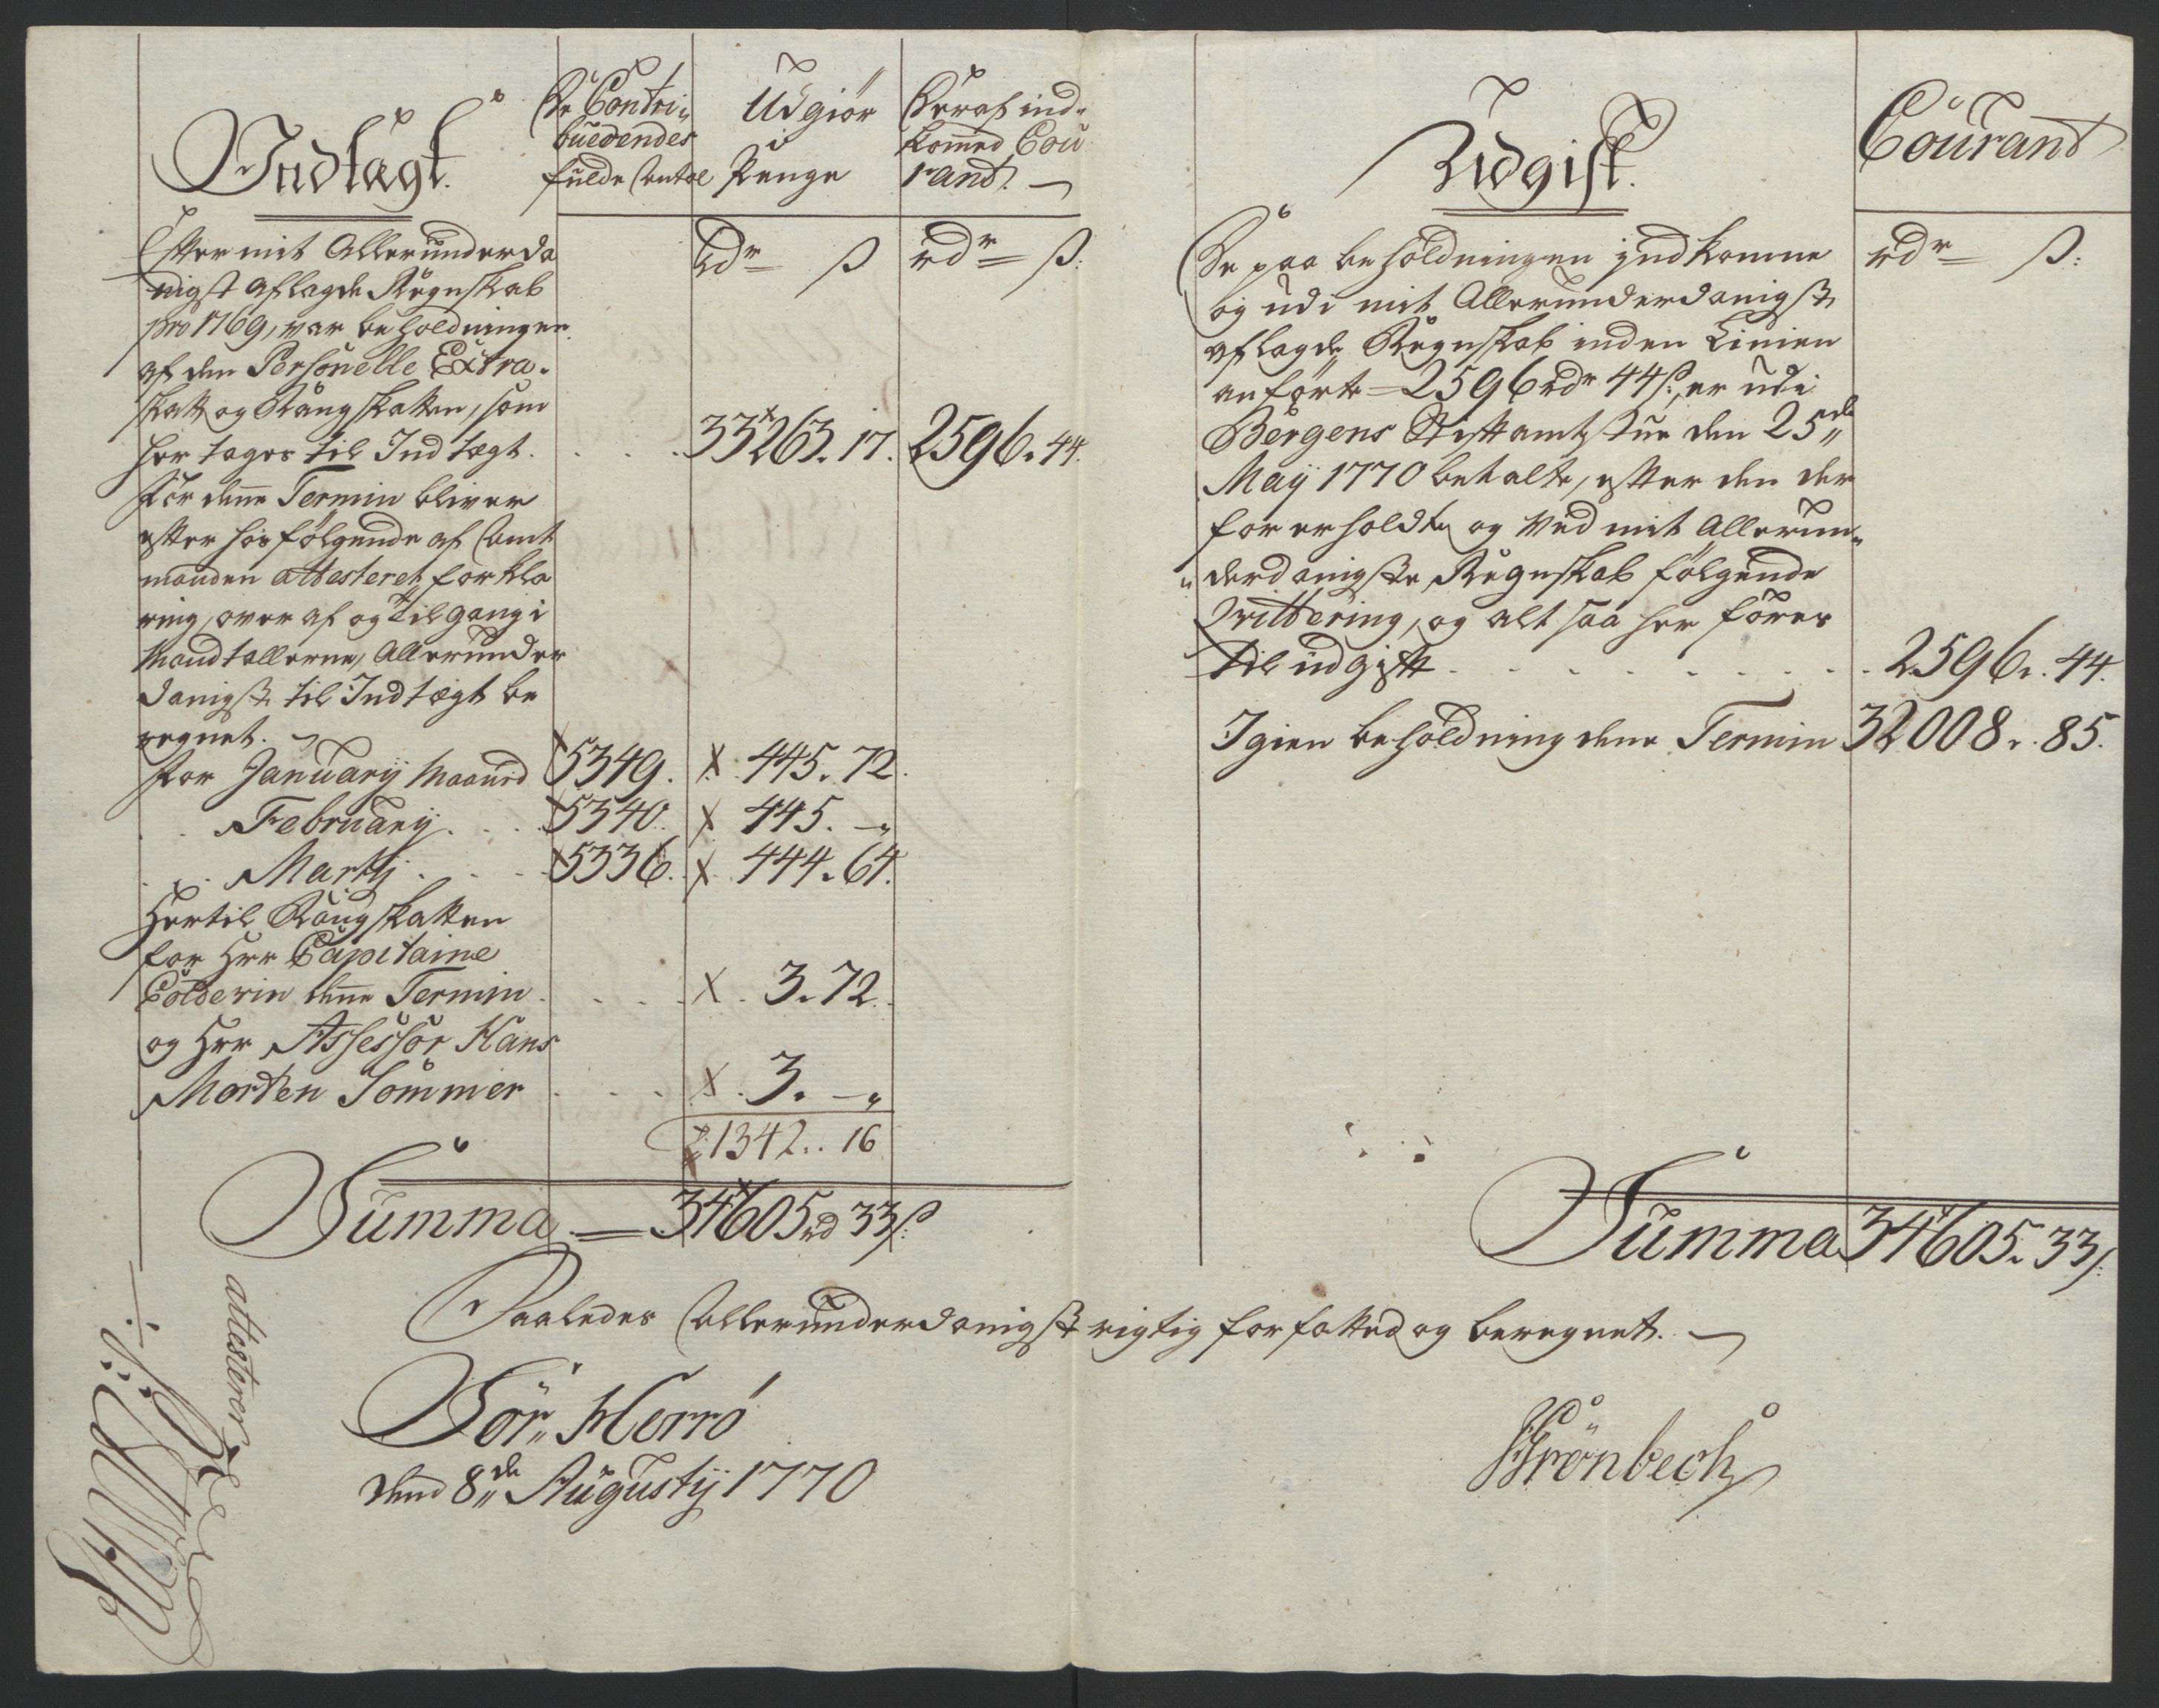 Indtægt.
De Contri„
buerendes
fulde Antal
Udgiør
i
Penge
Deraf ind„
kommed Cou
rant. —
rdr ß rdr ß:
Efter mit Allerunderda
nigst aflagde Regnskab
pro 1769, var beholdningen
af den Personelle Extra-
skatt og Rangskatten, som
her tages til Indtægt. . . . . 33263. 17. 2596. 44.
For denne Termin bliver
efter hosfølgende af Amt
manden attesteret forkla
ring, over af og tilgang i
Mandtallerne, Allerunder
danigst til Indtægt be
regnet. —
for Januarij Maaned 5349. 445. 72.
. . Februarij . . . 5340. 445. —„
. . Martij . . . . 5336. 444. 64.
Hertil Rangskatten
for Herr Capitaine
Colderin denne Termin . . . . . 3. 72.
og Herr Assessor Hans
Morten Sommer . . . . 3. —„
1342.. 16
Summa = 34605 rd 33 ß:
Udgift.
Courant
rdr ß:
De paa beholdningen indkomne
og udi mit Allerunderdanigst
aflagde Regnskab inden Linien
anførte = 2596 rdr 44 ß:, er udi
Bergens Stiftamtstue den 25de
Maij 1770 betalte, efter den der
for erholdte og ved mit Allerun„
„derdanigste Regnskab følgende
Qvittering, og altsaa her føres
til udgift . . . . . . . . . 2596. 44.
Igien beholdning denne Termin 32008. 85.
Summa 34605. 33 ß:
Saaledes Allerunderdanigst rigtig forfatted og beregnet. —
Sör„ Herrö
dend 8de Augustij 1770
Grönbech
attesterer